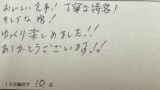 おいしい食事！丁寧な接客！
キレイな宿！
ゆっくり楽しめました！！
ありがとうございます！！！
10点満点で 10 点